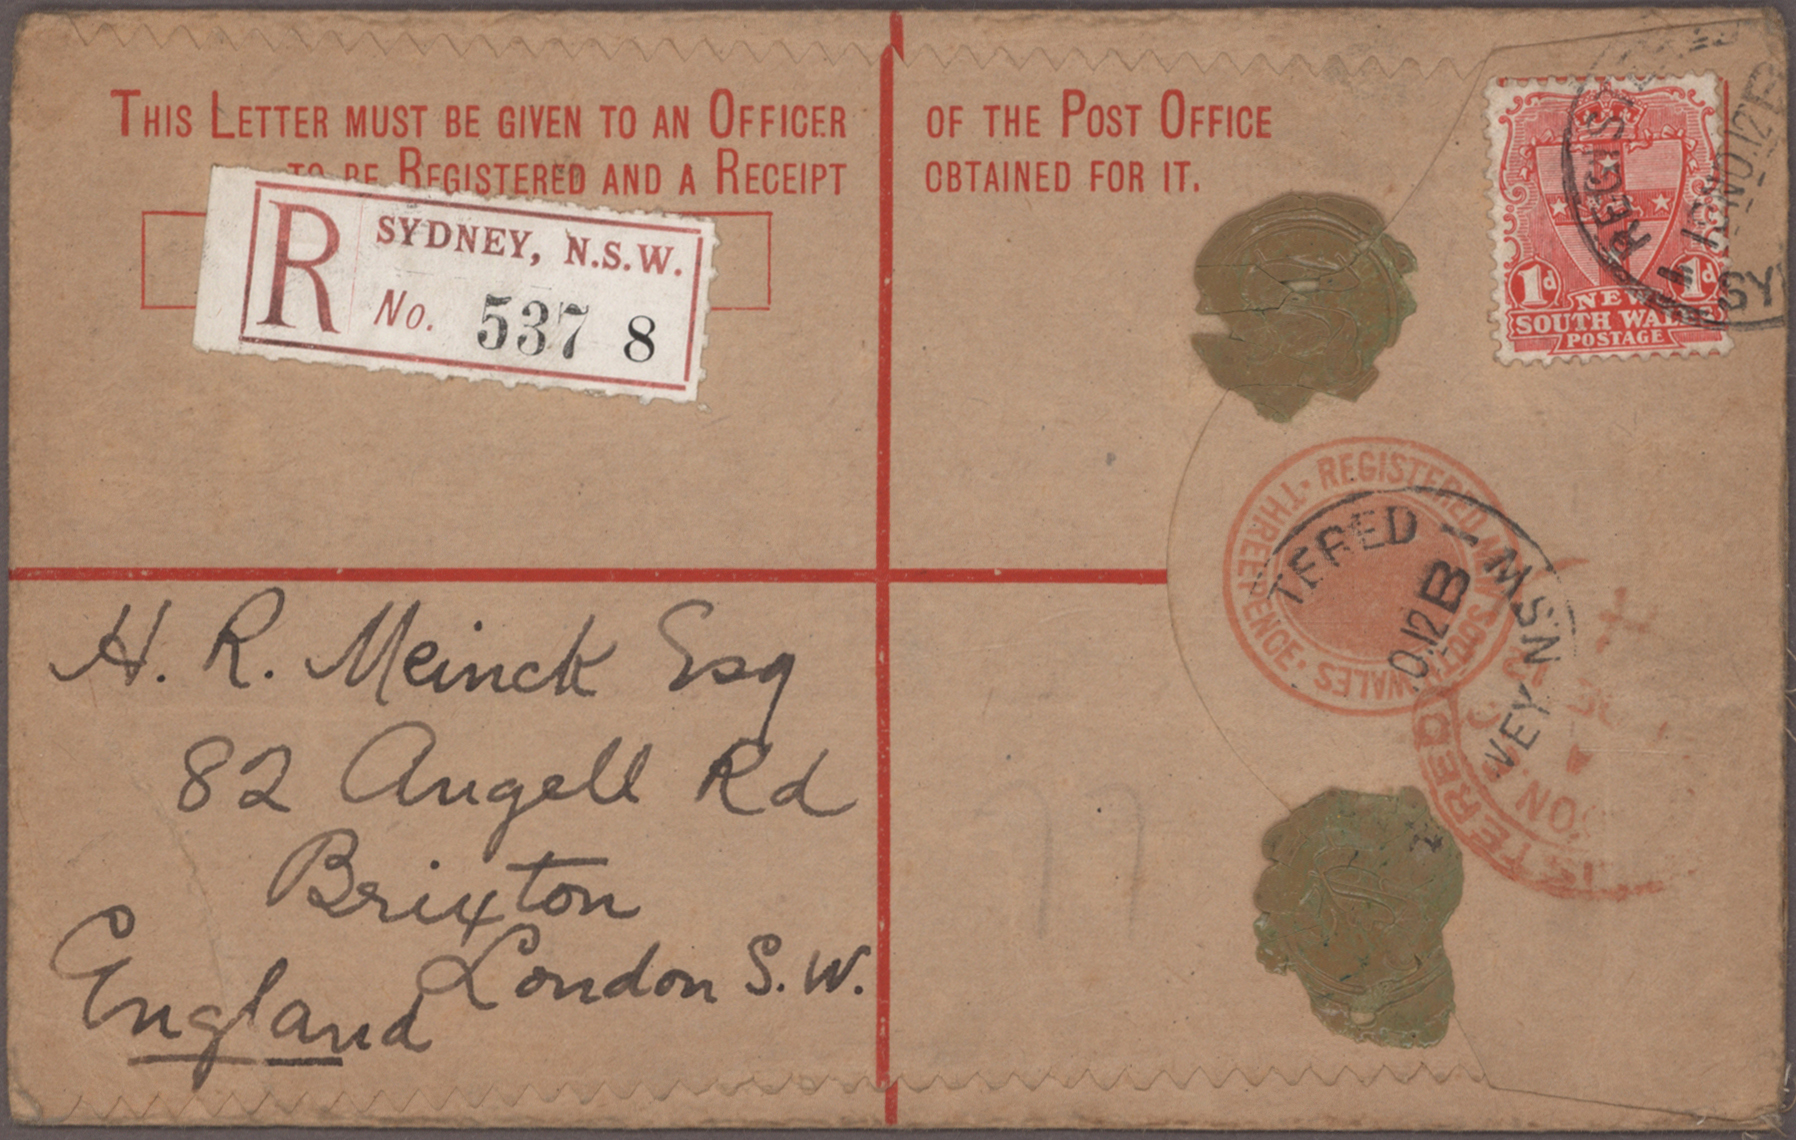 THIS LETTER MUST BE GIVEN TO AN OFFICER OF THE POST OFFICE
TO BE REGISTERED AND A RECEIPT OBTAINED FOR IT.
R SYDNEY, N.S.W.
No. 537 8
1d 1d
NEW
SOUTH WALES
POSTAGE
REGIST
NO.12
SY
REGISTERED NEW SOUTH WALES THREEPENCE
TERED
O.12 B
NEY N.S.W
ISTERED
H. R. Meinck Esq
82 Angell Rd
Brixton
London S.W.
England
77